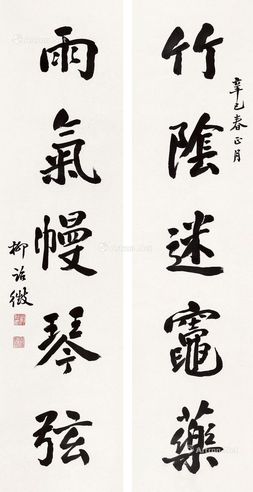 竹陰迷竈藥
辛巳春正月
雨氣幔琴弦
柳詒徵